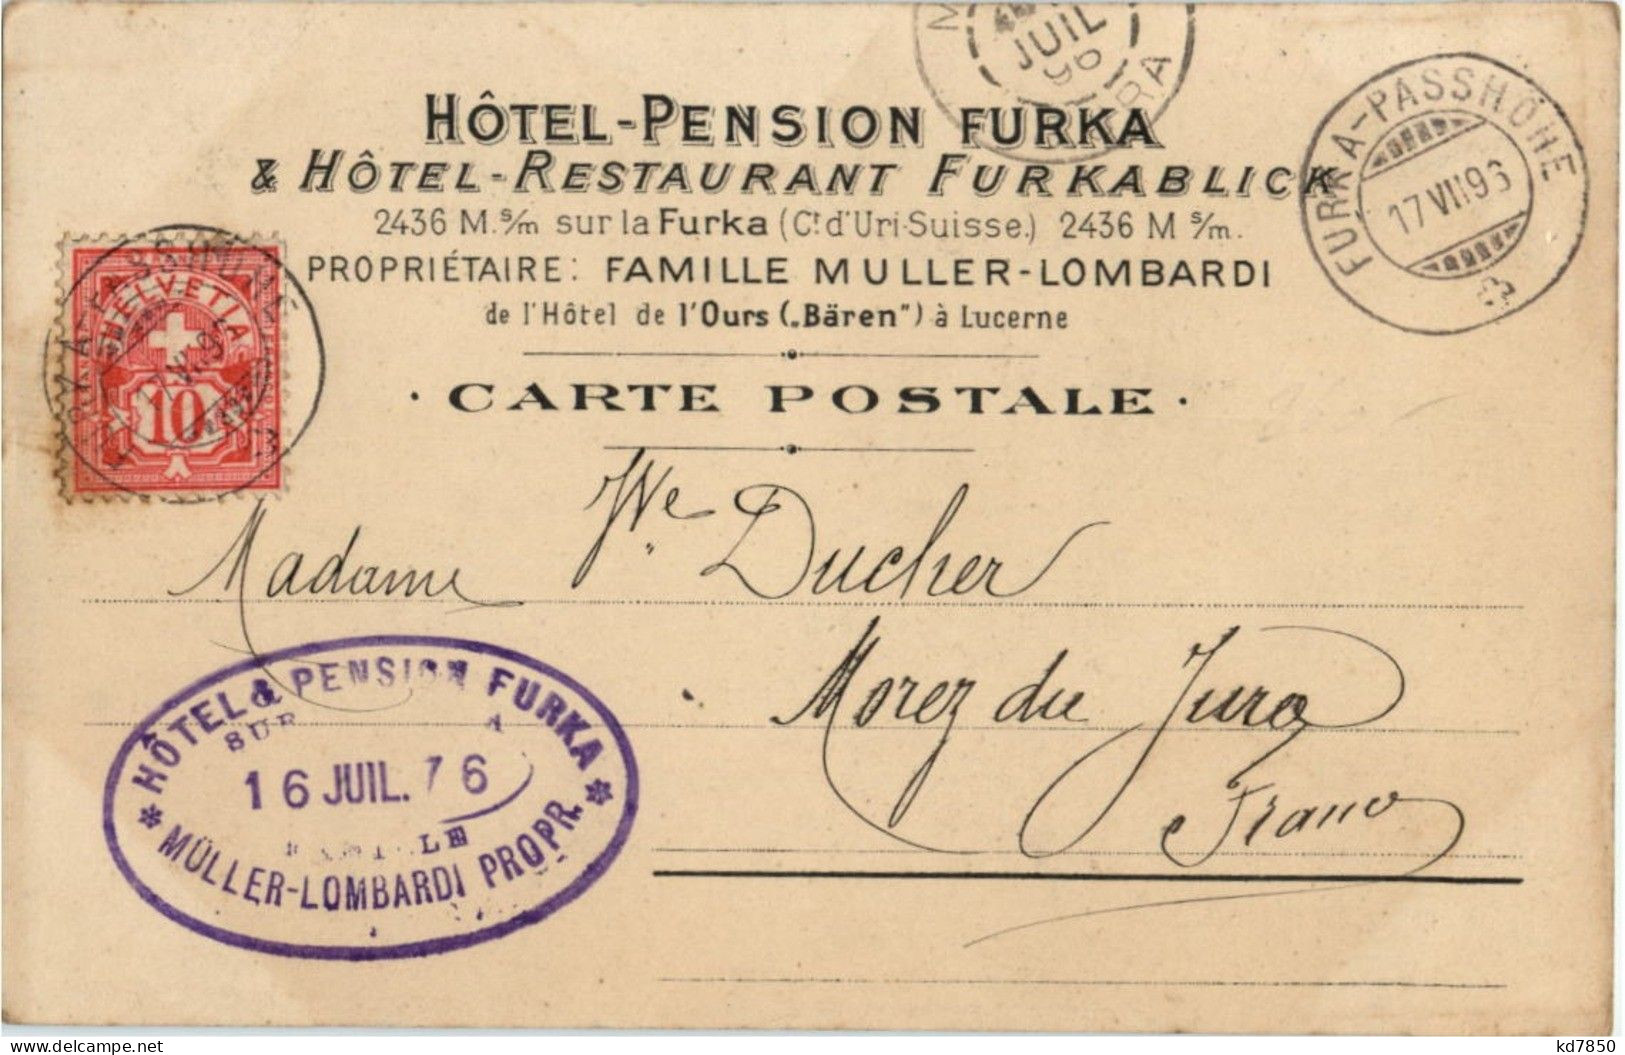 JUIL
96
HÔTEL-PENSION FURKA
& HÔTEL-RESTAURANT FURKABLICK
2436 M. s/m sur la Furka (Ct. d'Uri-Suisse.) 2436 M s/m.
PROPRIÉTAIRE: FAMILLE MULLER-LOMBARDI
de l'Hôtel de l'Ours („Bären") à Lucerne
CARTE POSTALE
FURKA-PASSHÖHE
17 VII 96
HELVETIA
10
Madame Vve Ducher
Morez du Jura
France
HÔTEL & PENSION FURKA
SUR
16 JUIL.
MÜLLER-LOMBARDI PROPR.
kd7850